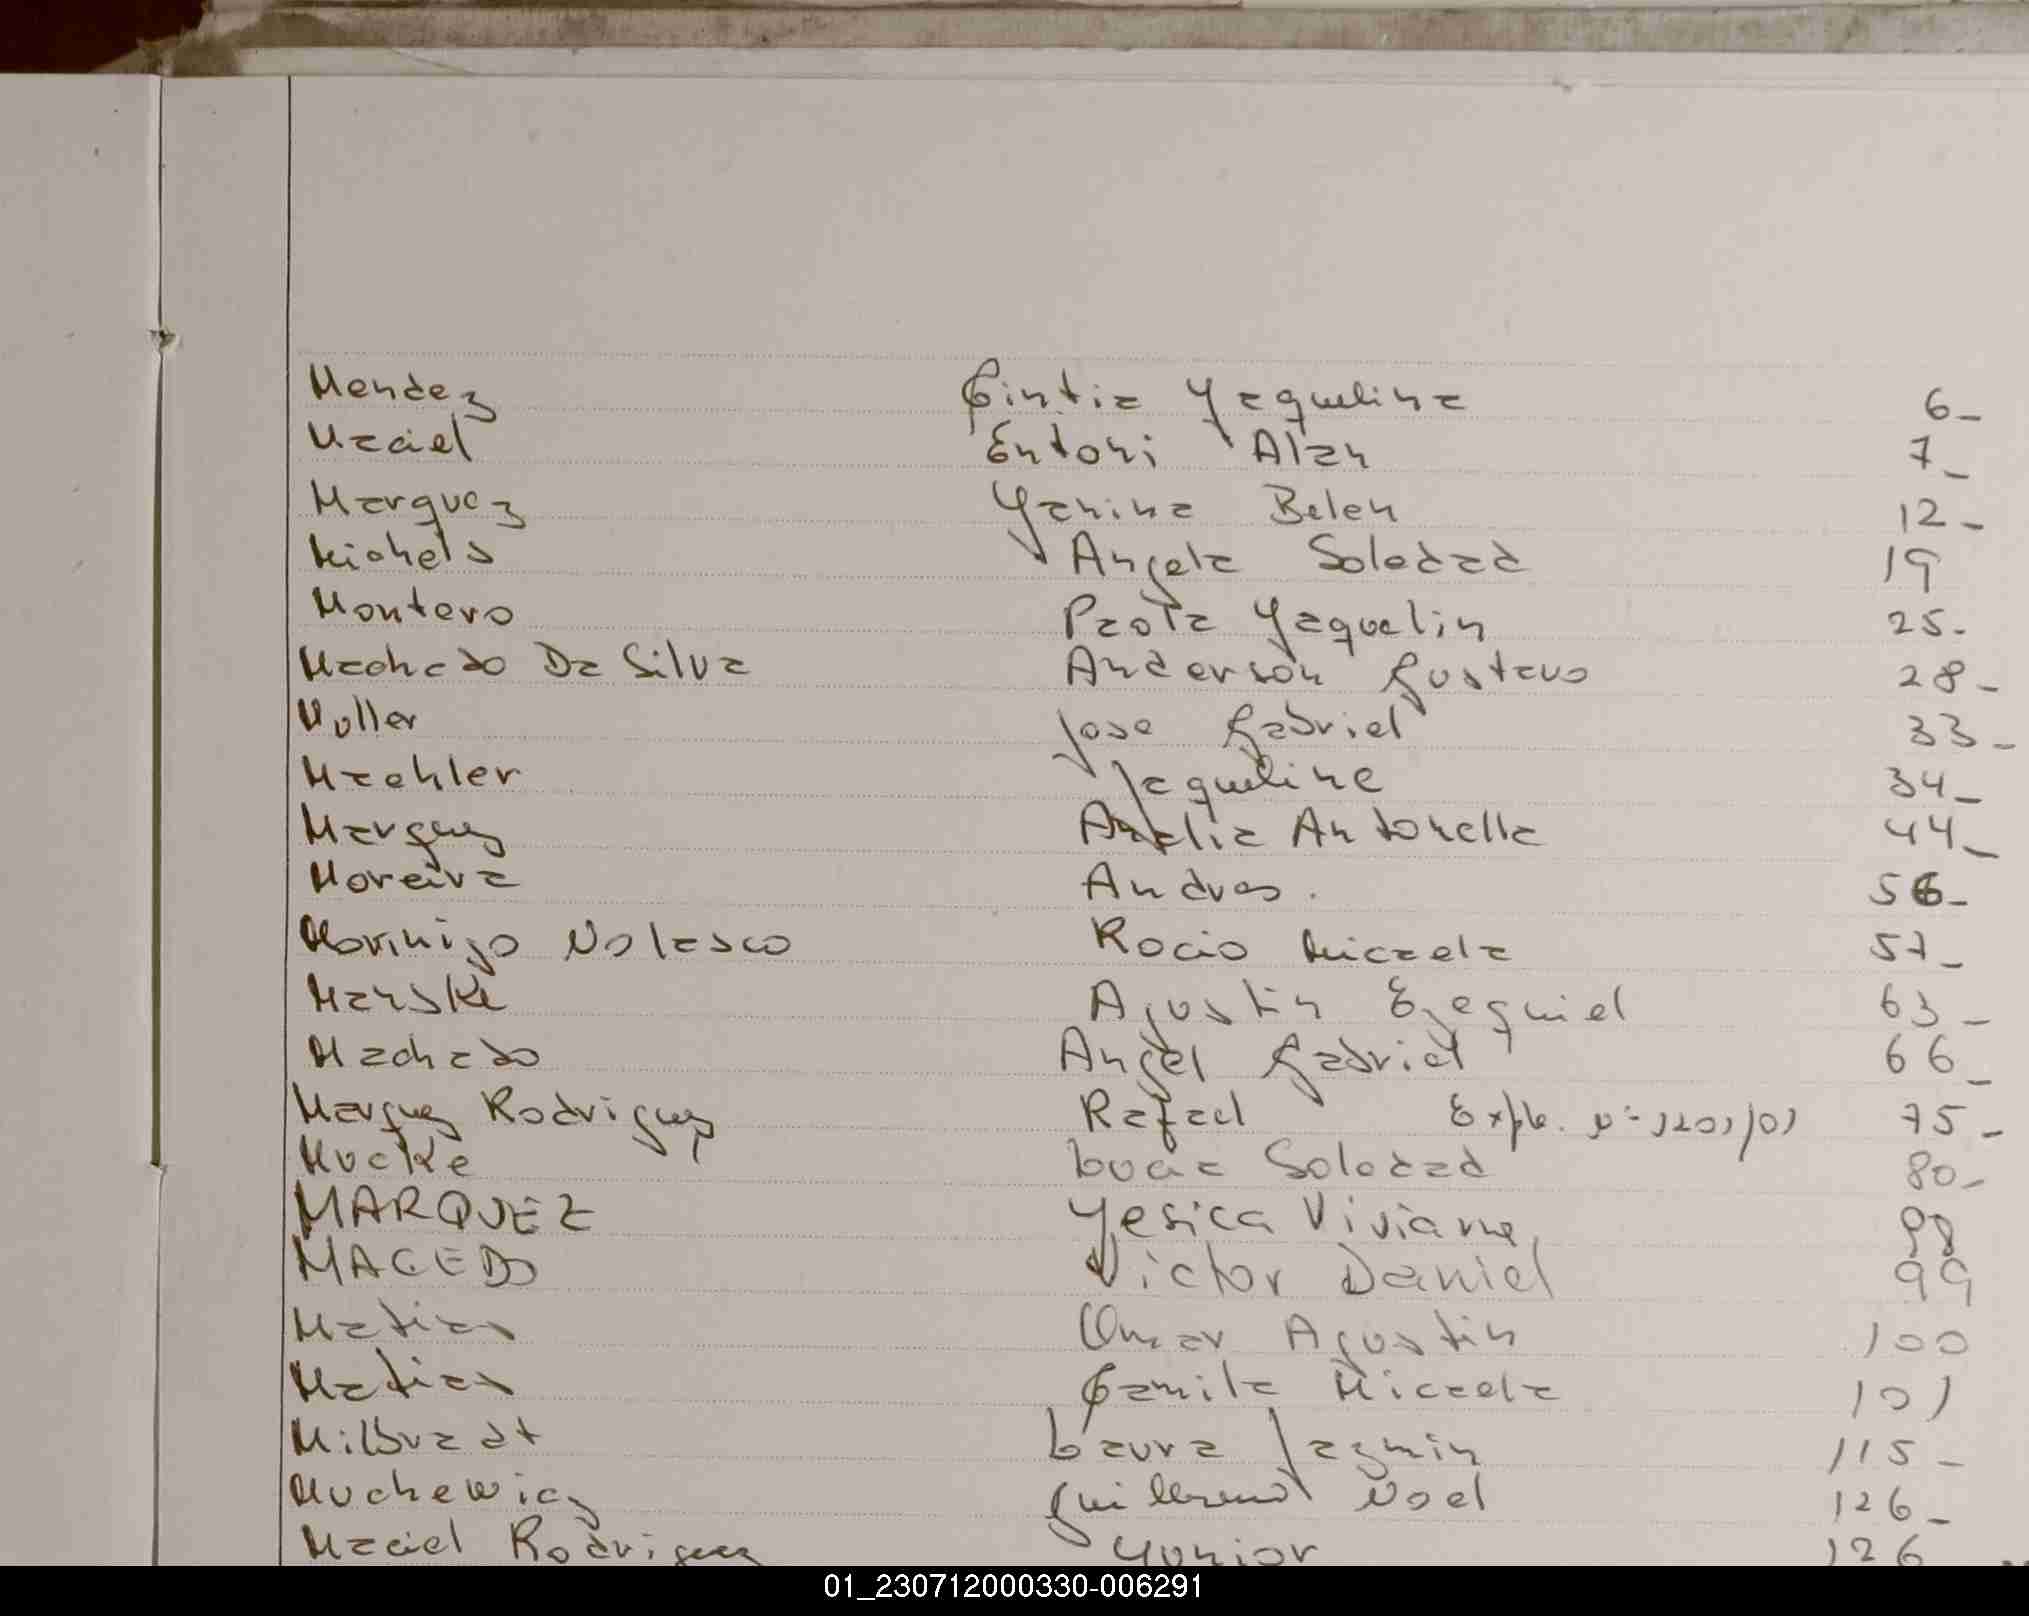 Mendez Cintia Yaquelina 6-
Maciel Entoni Alan 7-
Marquez Yanina Belen 12-
Michels Angela Soledad 19
Montero Paola Yaquelin 25-
Machado Da Silva Anderson Gustavo 28-
Muller Jose Gabriel 33-
Maehler Jaqueline 34-
Marquez Analia Antonella 44-
Moreira Andres. 56-
Morinigo Nolasco Rocio Micaela 57-
Manske Agustin Ezequiel 63-
Machado Angel Gabriel 66-
Marquez Rodriguez Rafael Expte. 75-
Mucke Lucia Soledad 80-
MARQUEZ Yesica Viviana 98
MACEDO Victor Daniel 99
Matias Omar Agustin 100
Matias Camila Micaela 101
Milbradt Laura Jazmin 115-
Muchewicz Guillermo Noel 126-
Maciel Rodriguez Yunior 126
01_230712000330-006291